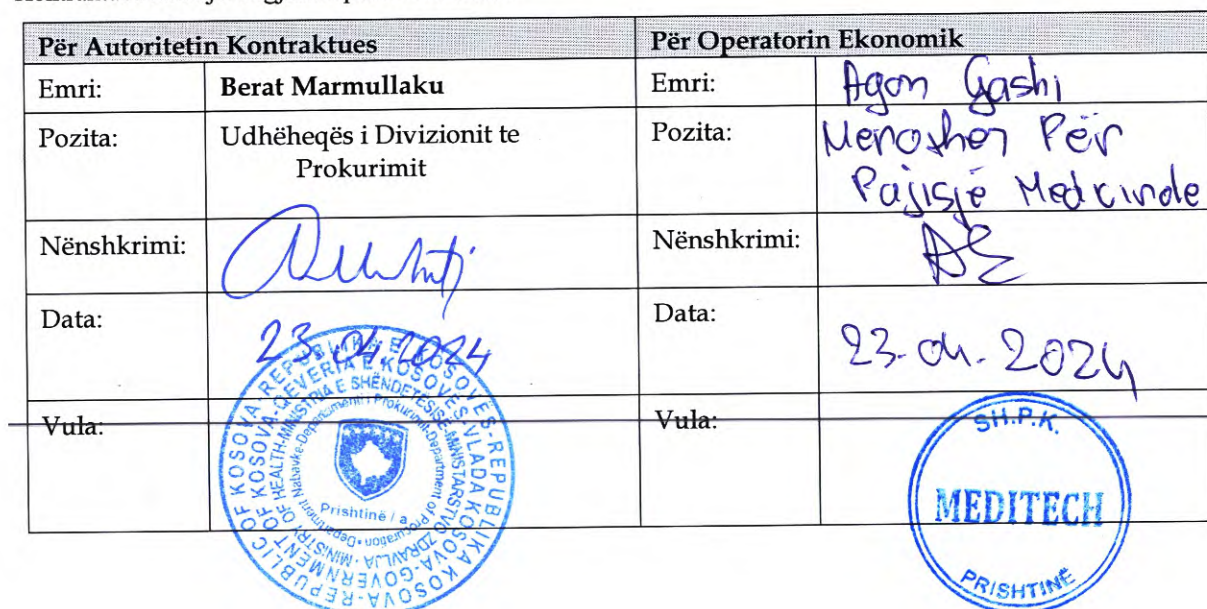 Për Autoritetin Kontraktues
Për Operatorin Ekonomik
Emri:
Berat Marmullaku
Emri:
Agon Gashi
Pozita:
Udhëheqës i Divizionit te
Prokurimit
Pozita:
Menaxher Për
Pajisje Medicinale
Nënshkrimi:
Nënshkrimi:
AG
Data:
23.04.2024
Data:
23.04.2024
Vula:
REPUBLIKA E KOSOVËS-REPUBLIKA KOSOVA-REPUBLIC OF KOSOVA
QEVERIA E KOSOVËS-VLADA KOSOVA-GOVERNMENT OF KOSOVA
MINISTRIA E SHËNDETËSISË-MINISTARSTVO ZDRAVLJA-MINISTRY OF HEALTH
Prishtinë / a
Vula:
SH.P.K.
MEDITECH
PRISHTINË